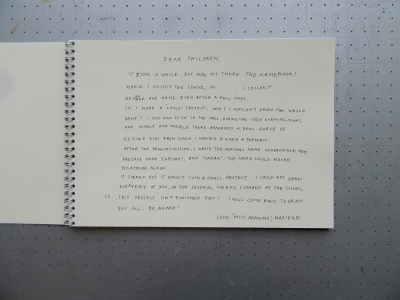 DEAR CHILDREN,
IT TOOK A WHILE, BUT NOW IT'S THERE: THE NAMEBOOK!
WHEN I VISITED THE SCHOOL IN I COULDN'T
ANY NAME, EVEN AFTER A FEW DAYS.
SO, I MADE A LITTLE PROJECT: WHY I WOULDN'T DRAW THE WHOLE
I JUST HAD TO SIT IN THE HALL DURING THE EVENING,
AND THERE APPEARED A REAL QUEUE OF
EXCITED KIDS FROM WHICH I HAD TO MAKE A PORTRAIT.
AFTER THE DRAWING SESSION, I WROTE THE PERSONS NAME UNDERNEATH THE
PERSON'S AND "TADAA", THE NAME WOULD NEVER
DISAPPEAR AGAIN.
IT TURNED OUT IT WASN'T SUCH A SMALL PROJECT. I COULD NOT DRAW
EVERYBODY OF YOU, IN THE SEVERAL WEEKS, I STAYED AT THE SCHOOL.
SO, THIS PROJECT ISN'T FINISHED YET! I WILL COME BACK TO DRAW
YOU ALL, BE AWARE!
LOVE, MISS DRAWING,